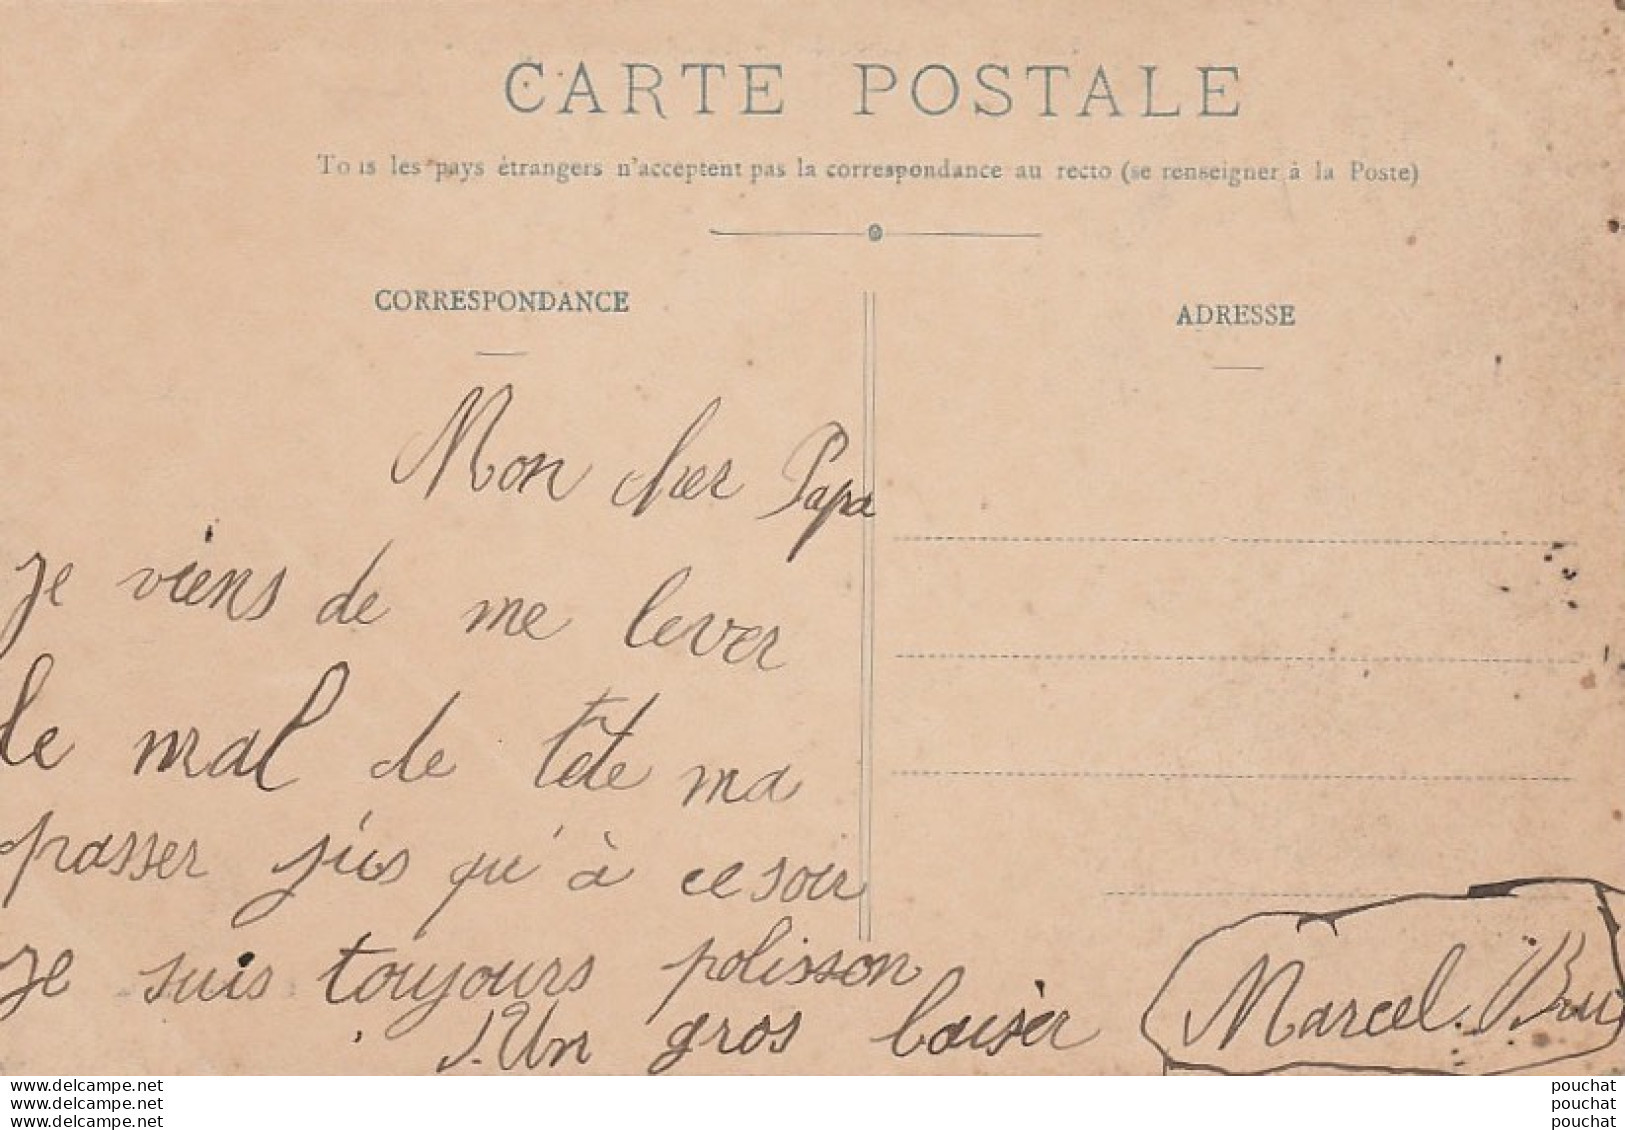 CARTE POSTALE
To is les pays étrangers n'acceptent pas la correspondance au recto (se renseigner à la Poste)
CORRESPONDANCE
ADRESSE
Mon cher Papa
Je viens de me lever
le mal de tête ma
passer jus qu'à ce soir
Je suis toujours polisson
Un gros baisèr
Marcel.
www.delcampe.net
www.delcampe.net
www.delcampe.net
pouchat
pouchat
pouchat